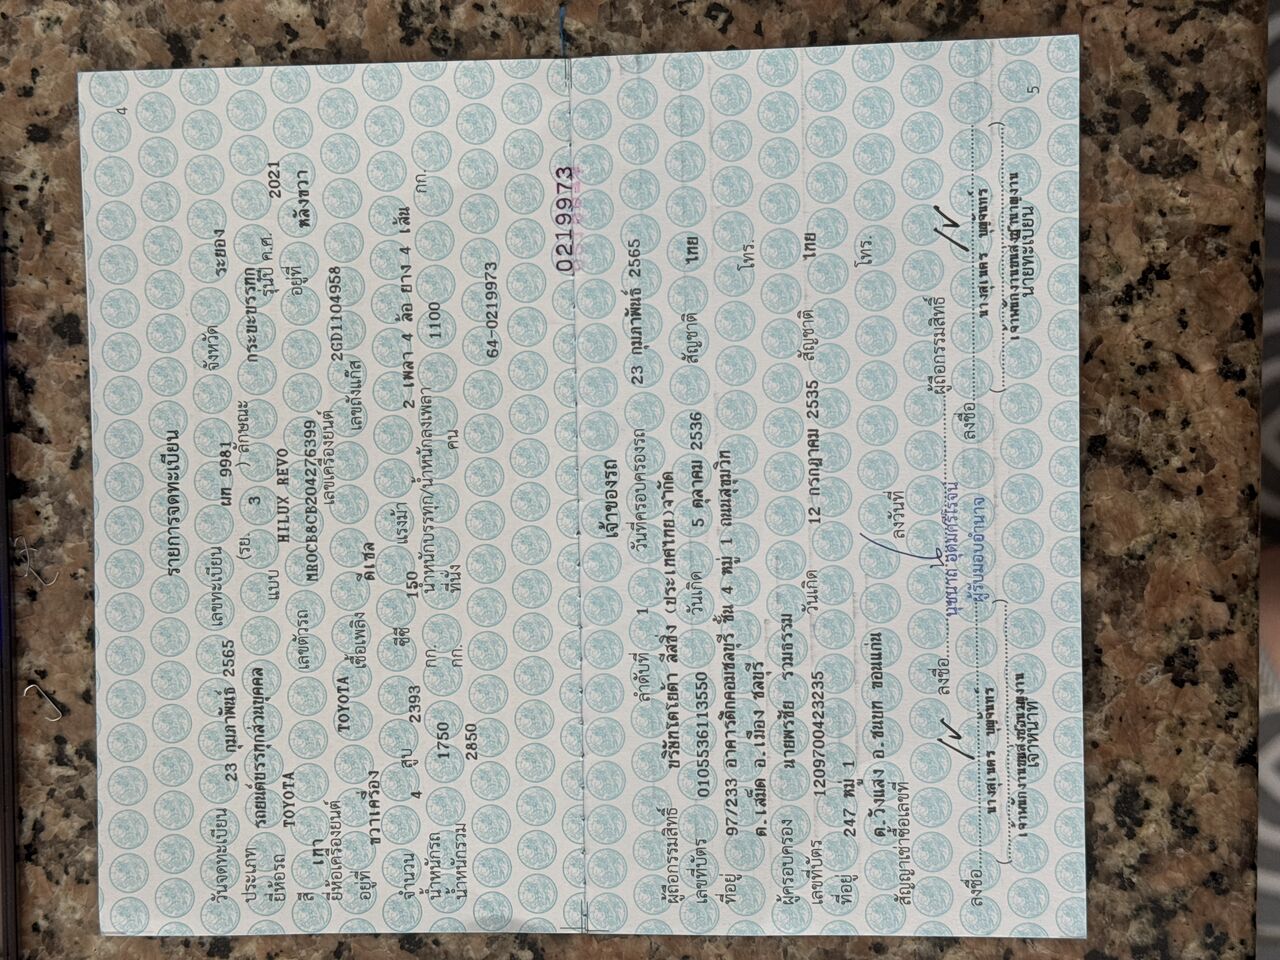 4
รายการจดทะเบียน
วันจดทะเบียน 23 กุมภาพันธ์ 2565 เลขทะเบียน ผท 9981 จังหวัด ระยอง
ประเภท รถยนต์บรรทุกส่วนบุคคล (รย. 3 ) ลักษณะ กระบะบรรทุก
ยี่ห้อรถ TOYOTA แบบ HILUX REVO รุ่นปี ค.ศ. 2021
สี เทา เลขตัวรถ MR0CB8CB204276399 อยู่ที่ หลังขวา
ยี่ห้อเครื่องยนต์ TOYOTA เลขเครื่องยนต์ 2GD1104958
อยู่ที่ ขวาเครื่อง เชื้อเพลิง ดีเซล เลขถังแก๊ส
จำนวน 4 สูบ 2393 ซีซี 150 แรงม้า 2 เพลา 4 ล้อ ยาง 4 เส้น
น้ำหนักรถ 1750 กก. น้ำหนักบรรทุก/น้ำหนักลงเพลา 1100 กก.
น้ำหนักรวม 2850 กก. ที่นั่ง คน
64-0219973
0219973
เจ้าของรถ
ลำดับที่ 1 วันที่ครอบครองรถ 23 กุมภาพันธ์ 2565
ผู้ถือกรรมสิทธิ์ บริษัทโตโยต้า ลีสซิ่ง (ประเทศไทย)จำกัด
เลขที่บัตร 0105536113550 วันเกิด 5 ตุลาคม 2536 สัญชาติ ไทย
ที่อยู่ 97/233 อาคารดิกคอมชลบุรี ชั้น 4 หมู่ 1 ถนนสุขุมวิท
ต.เสม็ด อ.เมือง ชลบุรี โทร.
ผู้ครอบครอง นายพรชัย รวมธรรม
เลขที่บัตร 1209700423235 วันเกิด 12 กรกฎาคม 2535 สัญชาติ ไทย
ที่อยู่ 247 หมู่ 1
ต.วังแสง อ.ชนบท ขอนแก่น โทร.
สัญญาเช่าซื้อเลขที่ ลงวันที่
ลงชื่อ ผู้ถือกรรมสิทธิ์
ผู้รับมอบอำนาจ
ลงชื่อ ลงชื่อ
เจ้าพนักงานขนส่งชำนาญงาน เจ้าพนักงานขนส่งชำนาญงาน
เจ้าหน้าที่ นายทะเบียน
5